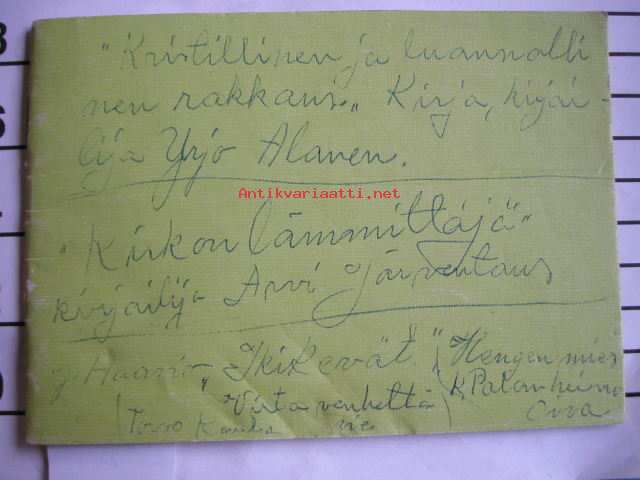 "Kristillinen ja luonnolli
nen rakkaus" Kirja, kirjai-
lija Yrjö Alanen.
Antikvariaatti.net
"Kirkonlämmittäjä"
kirjailija Arvi Järventaus
"Ikikevät" "Hengen mies
Virta venhettä K Patanheimo
vie